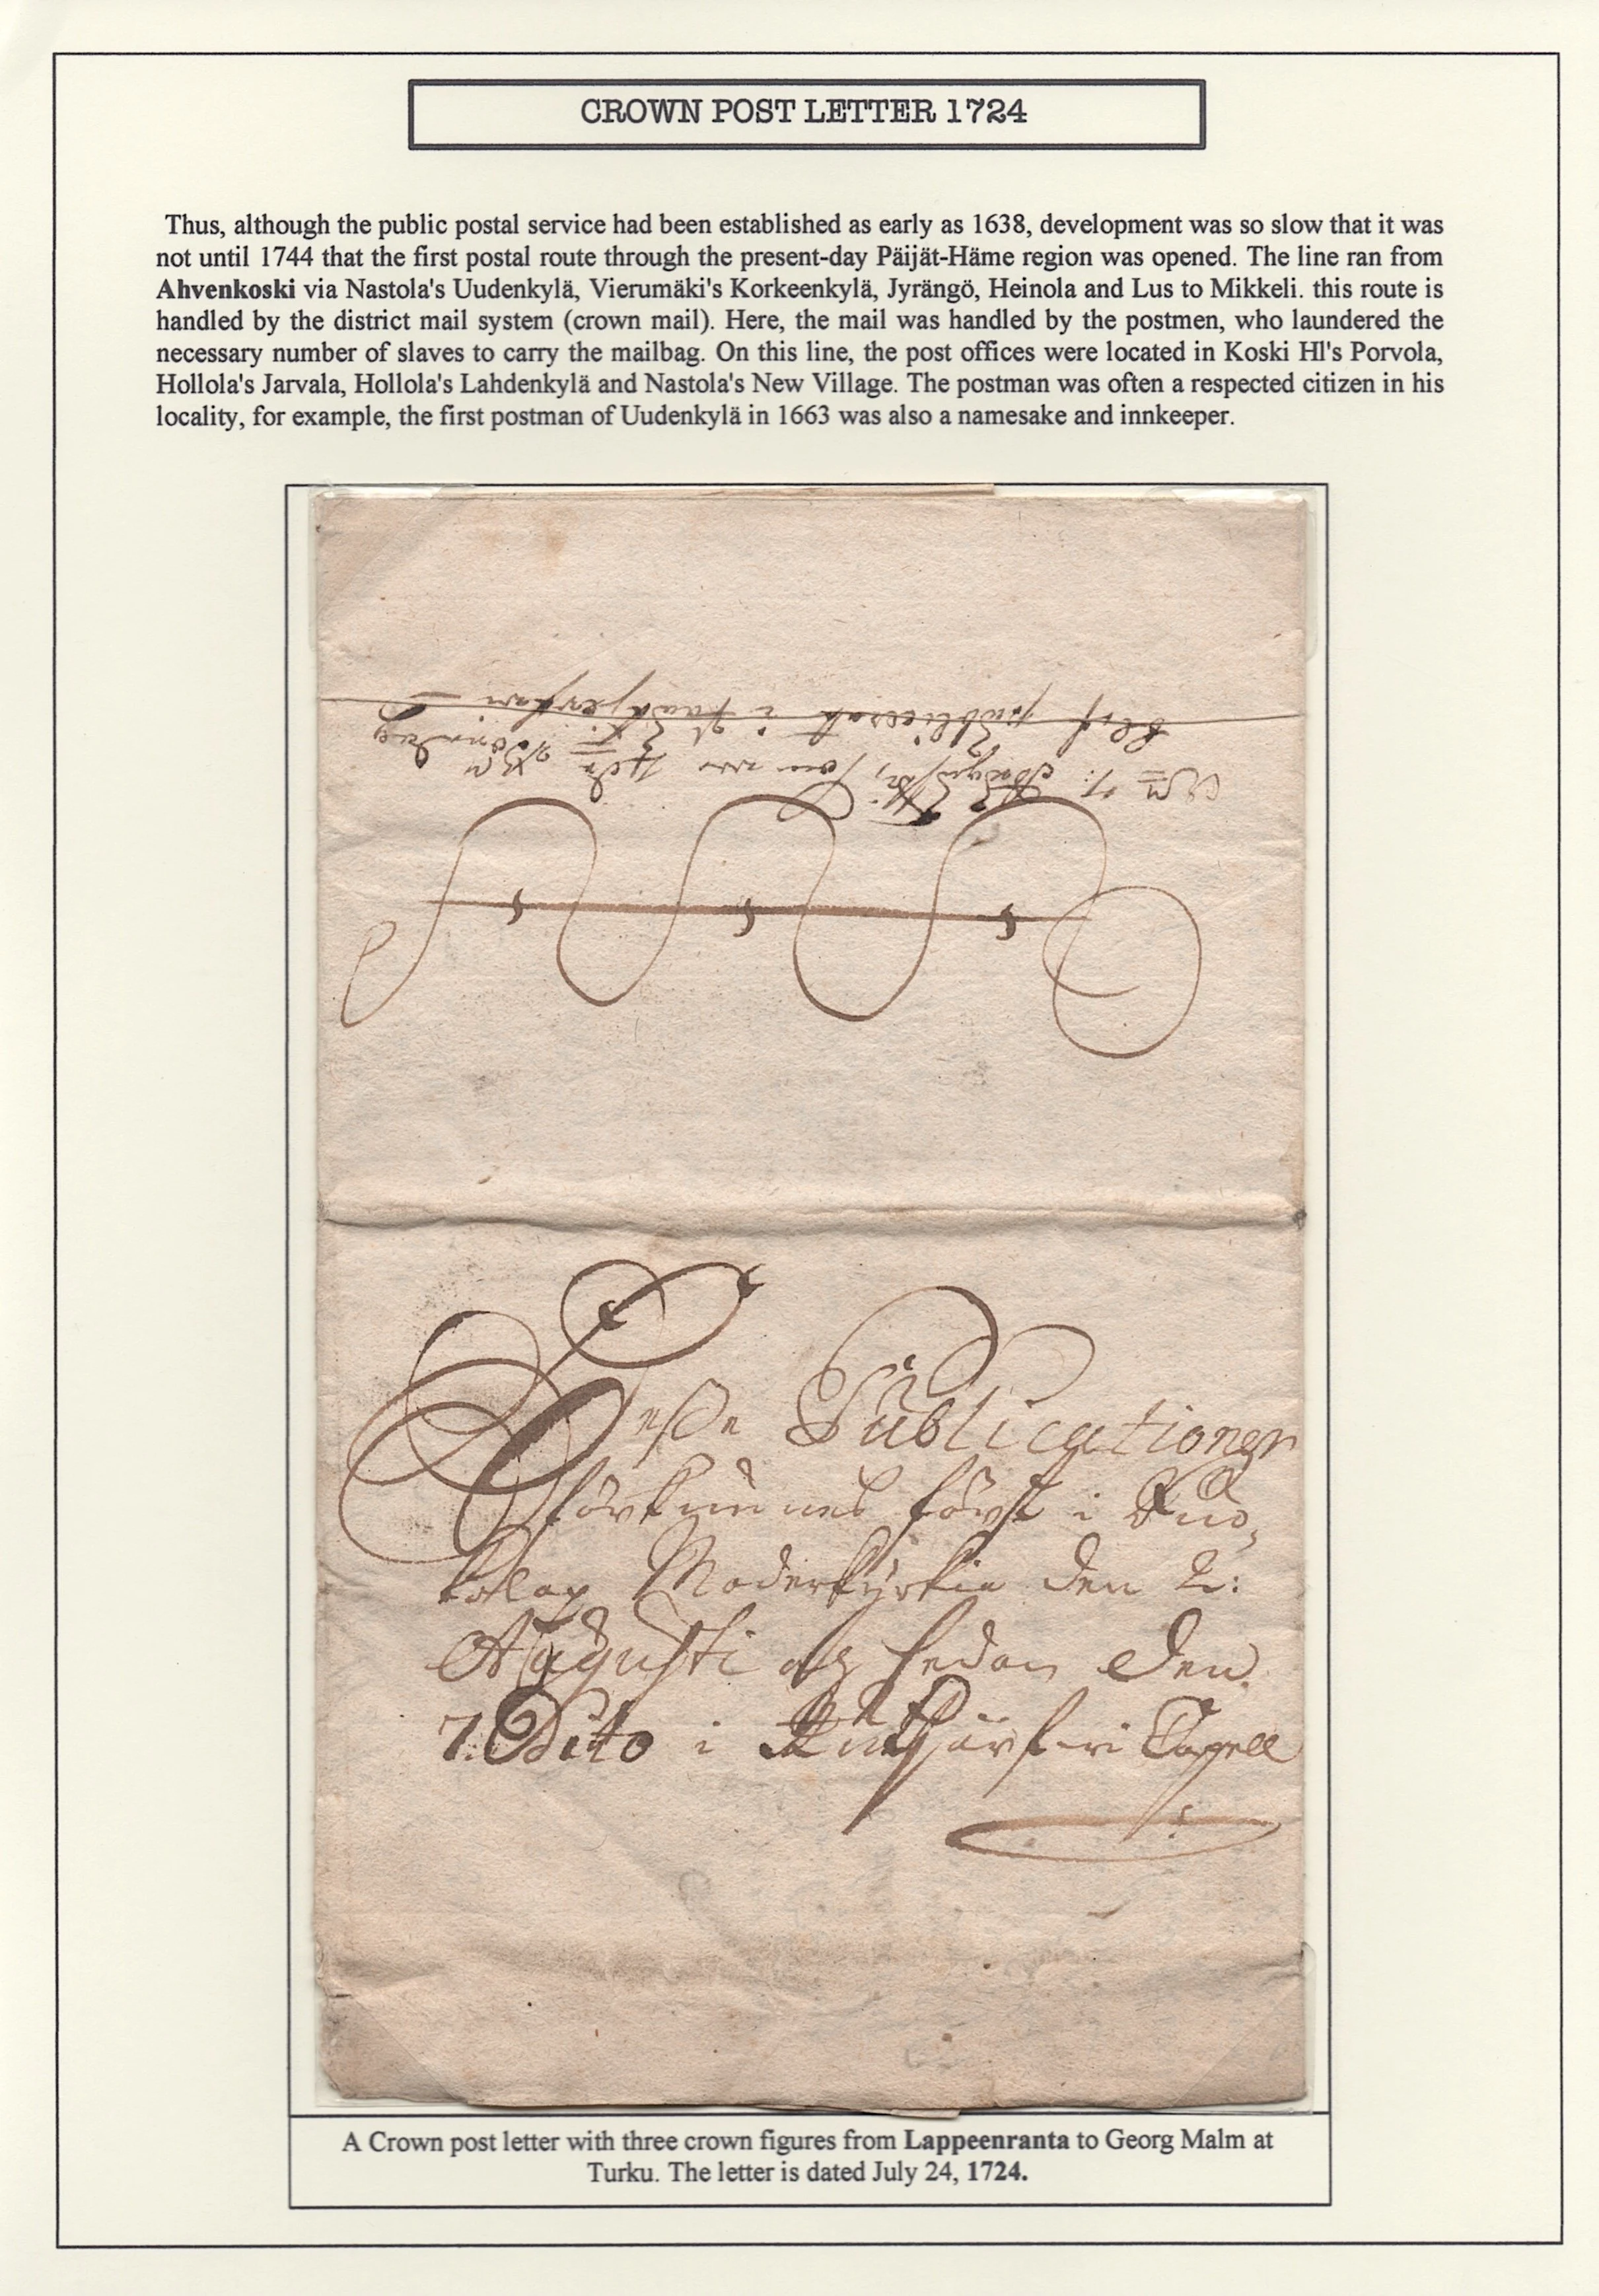 CROWN POST LETTER 1724
Thus, although the public postal service had been established as early as 1638, development was so slow that it was
not until 1744 that the first postal route through the present-day Päijät-Häme region was opened. The line ran from
Ahvenkoski via Nastola's Uudenkylä, Vierumäki's Korkeenkylä, Jyrängö, Heinola and Lus to Mikkeli. this route is
handled by the district mail system (crown mail). Here, the mail was handled by the postmen, who laundered the
necessary number of slaves to carry the mailbag. On this line, the post offices were located in Koski Hl's Porvola,
Hollola's Jarvala, Hollola's Lahdenkylä and Nastola's New Village. The postman was often a respected citizen in his
locality, for example, the first postman of Uudenkylä in 1663 was also a namesake and innkeeper.
blef publicerat i
Desse Publicationer
förkunnes först i Ruo-
kolax Moderkyrkia den 2:
Augusti och sedan den
7. Dito i Capell
A Crown post letter with three crown figures from Lappeenranta to Georg Malm at
Turku. The letter is dated July 24, 1724.